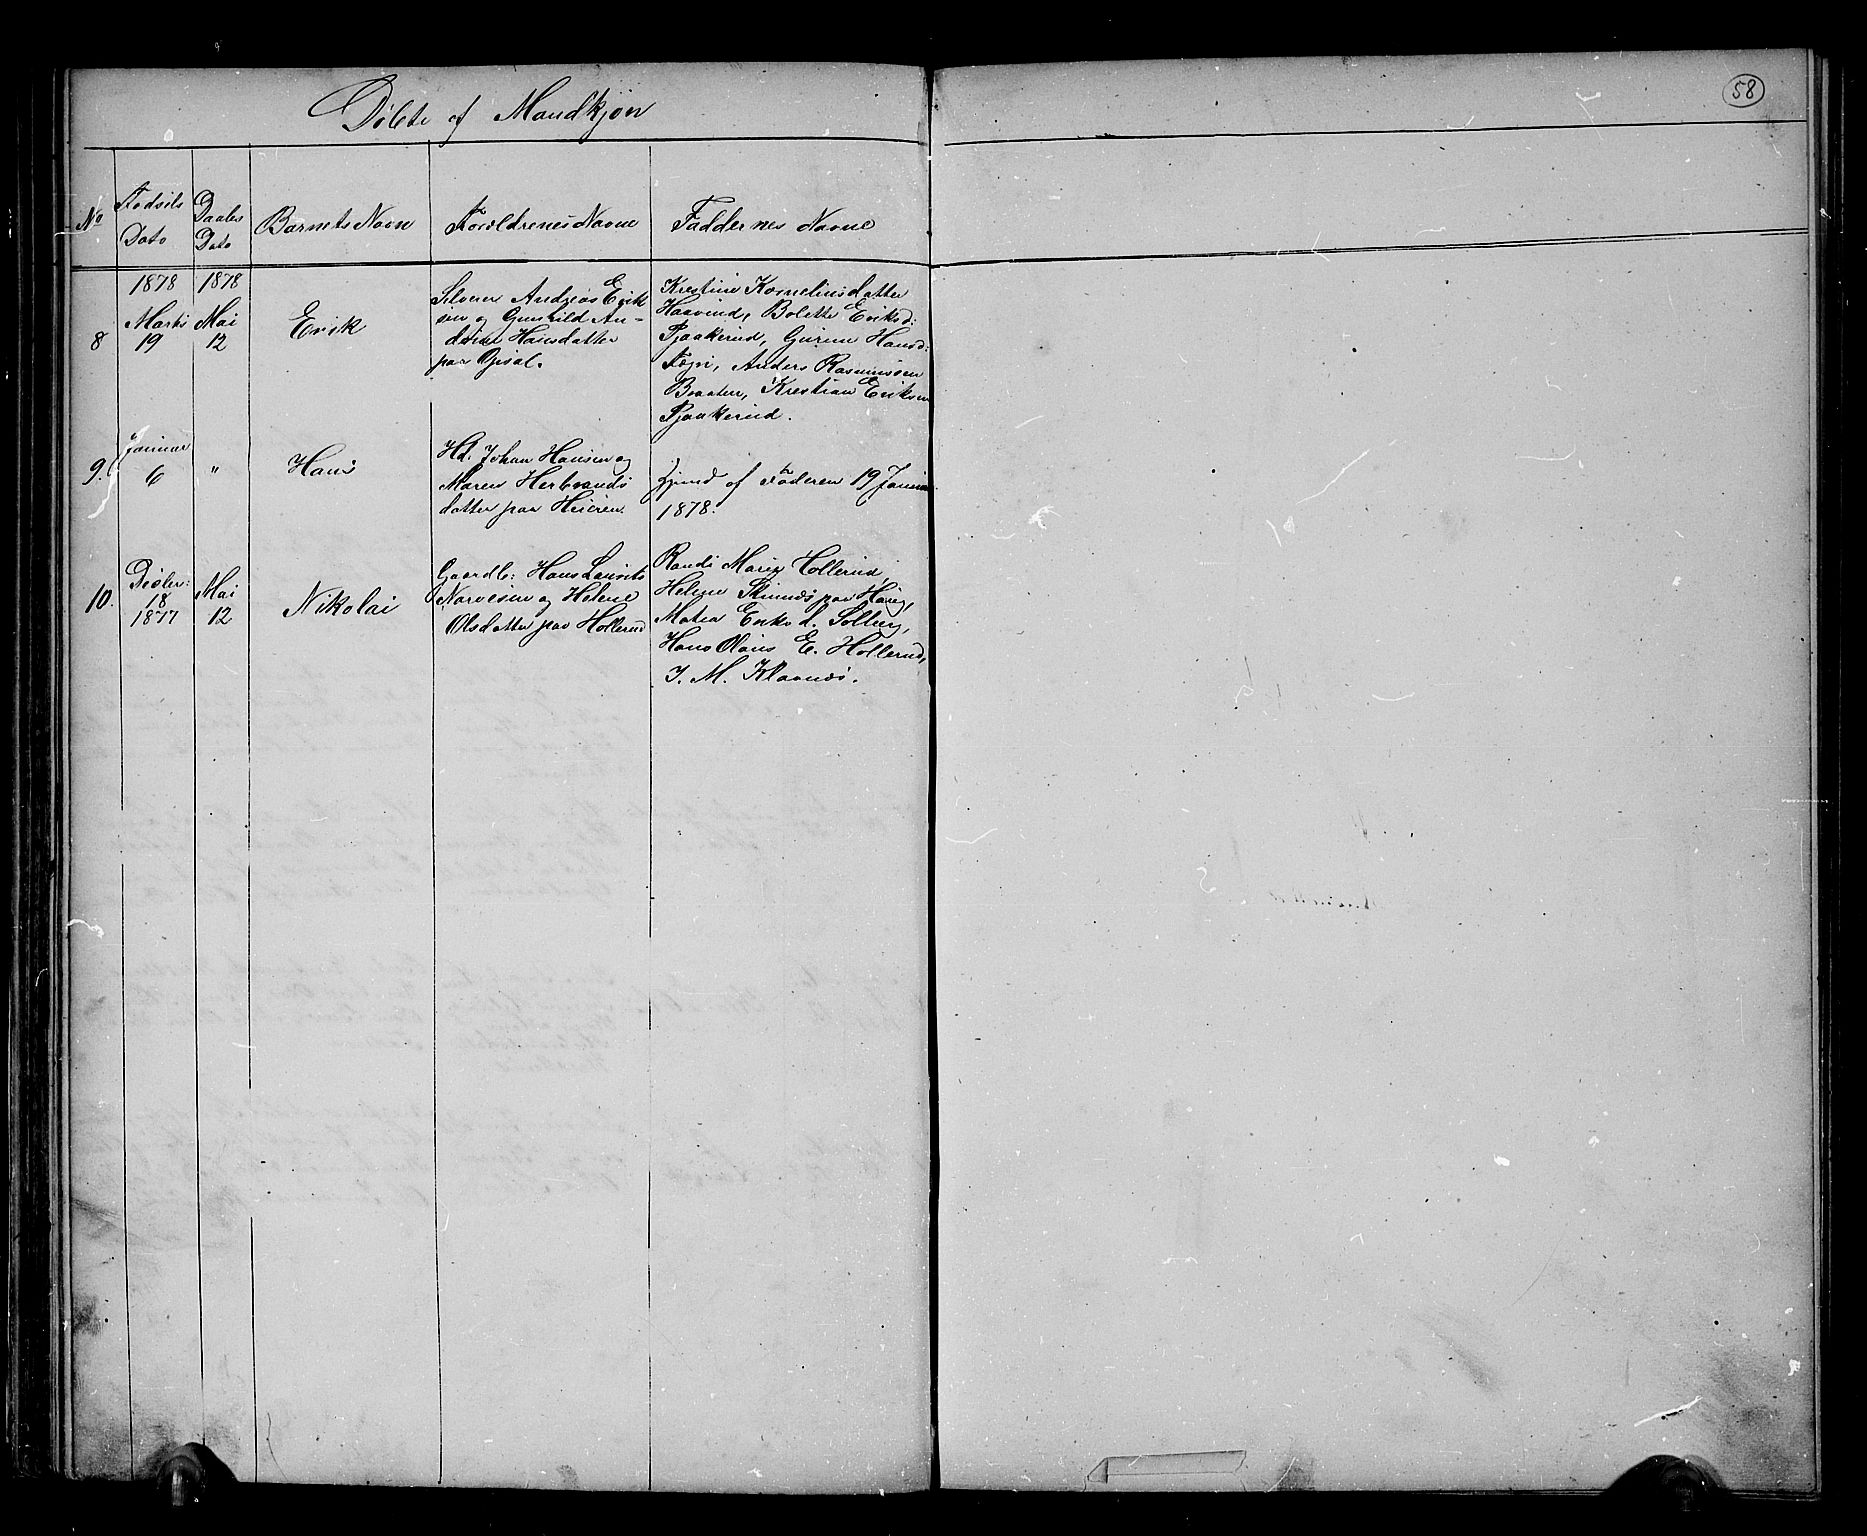 58
Döbte af Mandkjøn
No
Fødsels Dato
Daabs Dato
Barnets Navn
Forældrenes Navne
Faddernes Navne
8
1878 Marts 19
1878 Mai 12
Erik
Selveier Andreas Erik
sen og Gunhild An-
drine Hansdatter
paa Opsal.
Krestine Kornelinsdatter
Haavind, Bolette Eriksd:
Pjaakerud, Gurine Hansd:
Togri, Anders Rasmussen
Braaten, Krestian Eriksen
Pjaakerud.
9.
Januar 6
"
Hans
Hd. Johan Hansen og
Maren Herbrands
datter paa Heieren
Hjemd af Faderen 19 Januar
1878.
10.
Decbr: 18 1877
Mai 12
Nikolai
Gaardb: Hans Laurits
Narvesen og Helene
Olsdatter paa Hollerud
Randi Marie Hollerud,
Helene Simens paa Haug,
Matea Eriksd. Solberg,
Hans Olaus E. Hollerud,
J. M. Klavnes.